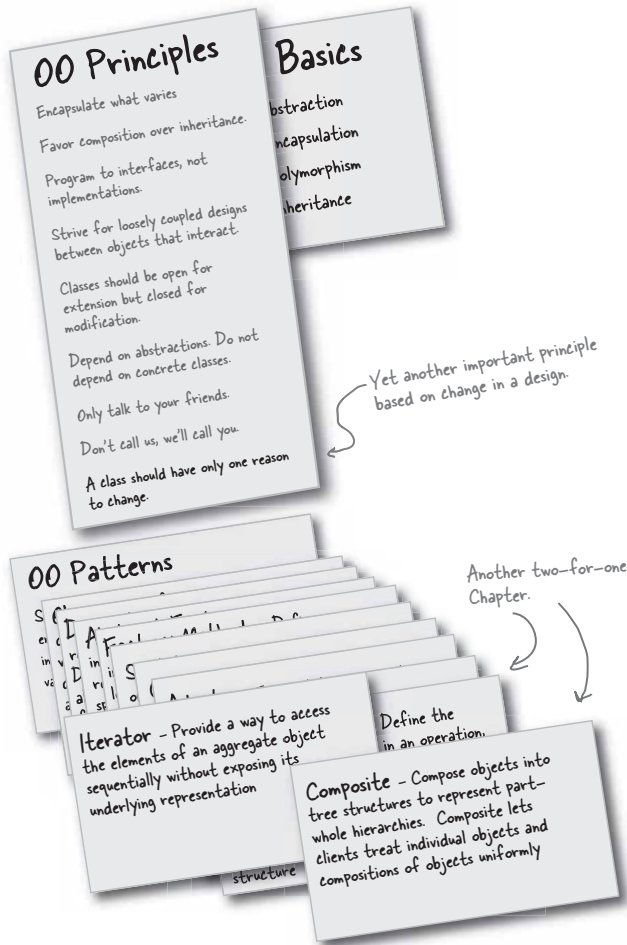 OO Principles
Encapsulate what varies
Favor composition over inheritance.
Program to interfaces, not
implementations.
Strive for loosely coupled designs
between objects that interact.
Classes should be open for
extension but closed for
modification.
Depend on abstractions. Do not
depend on concrete classes.
Only talk to your friends.
Don't call us, we'll call you.
A class should have only one reason
to change.
Basics
bstraction
ncapsulation
olymorphism
heritance
Yet another important principle
based on change in a design.
OO Patterns
Another two-for-one
Chapter.
Iterator - Provide a way to access
the elements of an aggregate object
sequentially without exposing its
underlying representation
Define the
in an operation,
structure
Composite - Compose objects into
tree structures to represent part-
whole hierarchies. Composite lets
clients treat individual objects and
compositions of objects uniformly